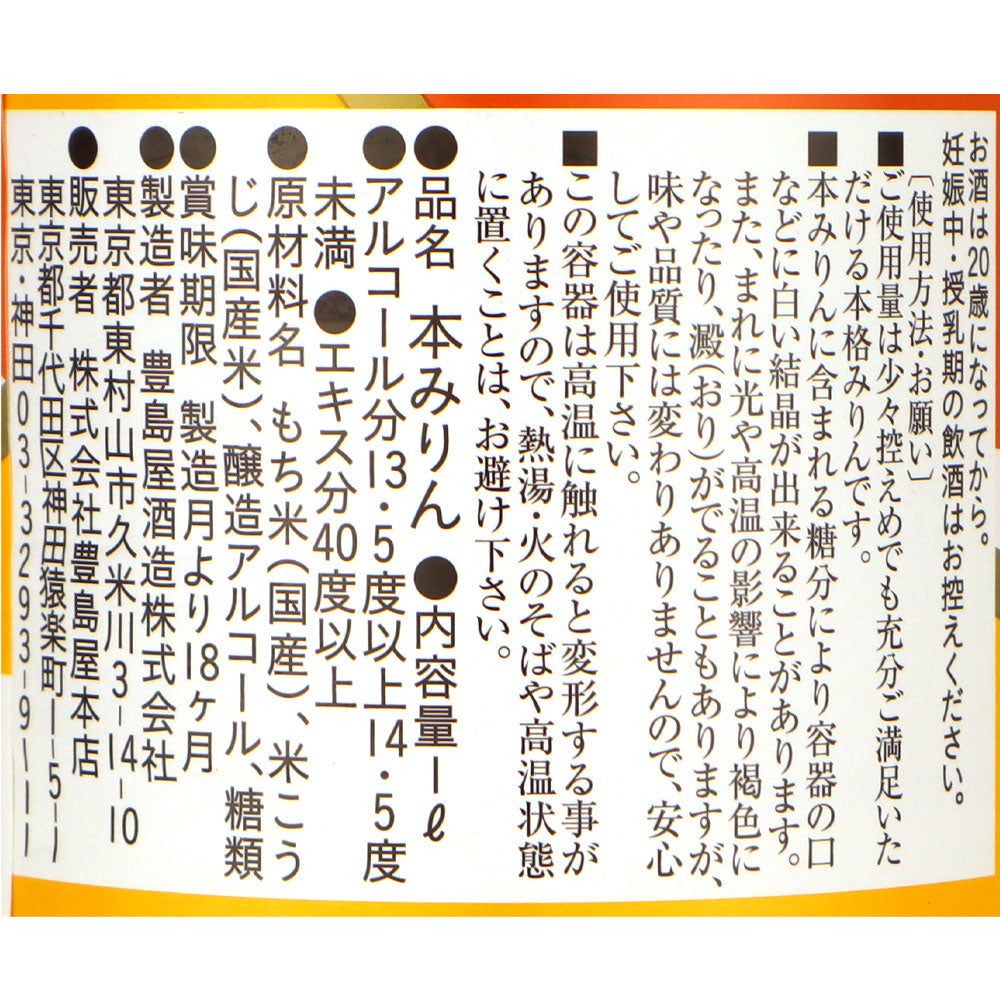 お酒は20歳になってから。
妊娠中・授乳期の飲酒はお控えください。
〔使用方法・お願い〕
■ご使用量は少々控えめでも充分ご満足いた
だける本格みりんです。
■本みりんに含まれる糖分により容器の口
などに白い結晶が出来ることがあります。
また、まれに光や高温の影響により褐色に
なったり、澱(おり)がでることもありますが、
味や品質には変わりありませんので、安心
してご使用下さい。
■この容器は高温に触れると変形する事が
ありますので、熱湯・火のそばや高温状態
に置くことは、お避け下さい。
●品名 本みりん ●内容量1ℓ
●アルコール分13・5度以上14・5度
未満 ●エキス分40度以上
●原材料名 もち米(国産)、米こう
じ(国産米)、醸造アルコール、糖類
●賞味期限 製造月より18ヶ月
●製造者 豊島屋酒造株式会社
東京都東村山市久米川3-14-10
●販売者 株式会社豊島屋本店
東京都千代田区神田猿楽町1-5-1
東京・神田03-3293-9111